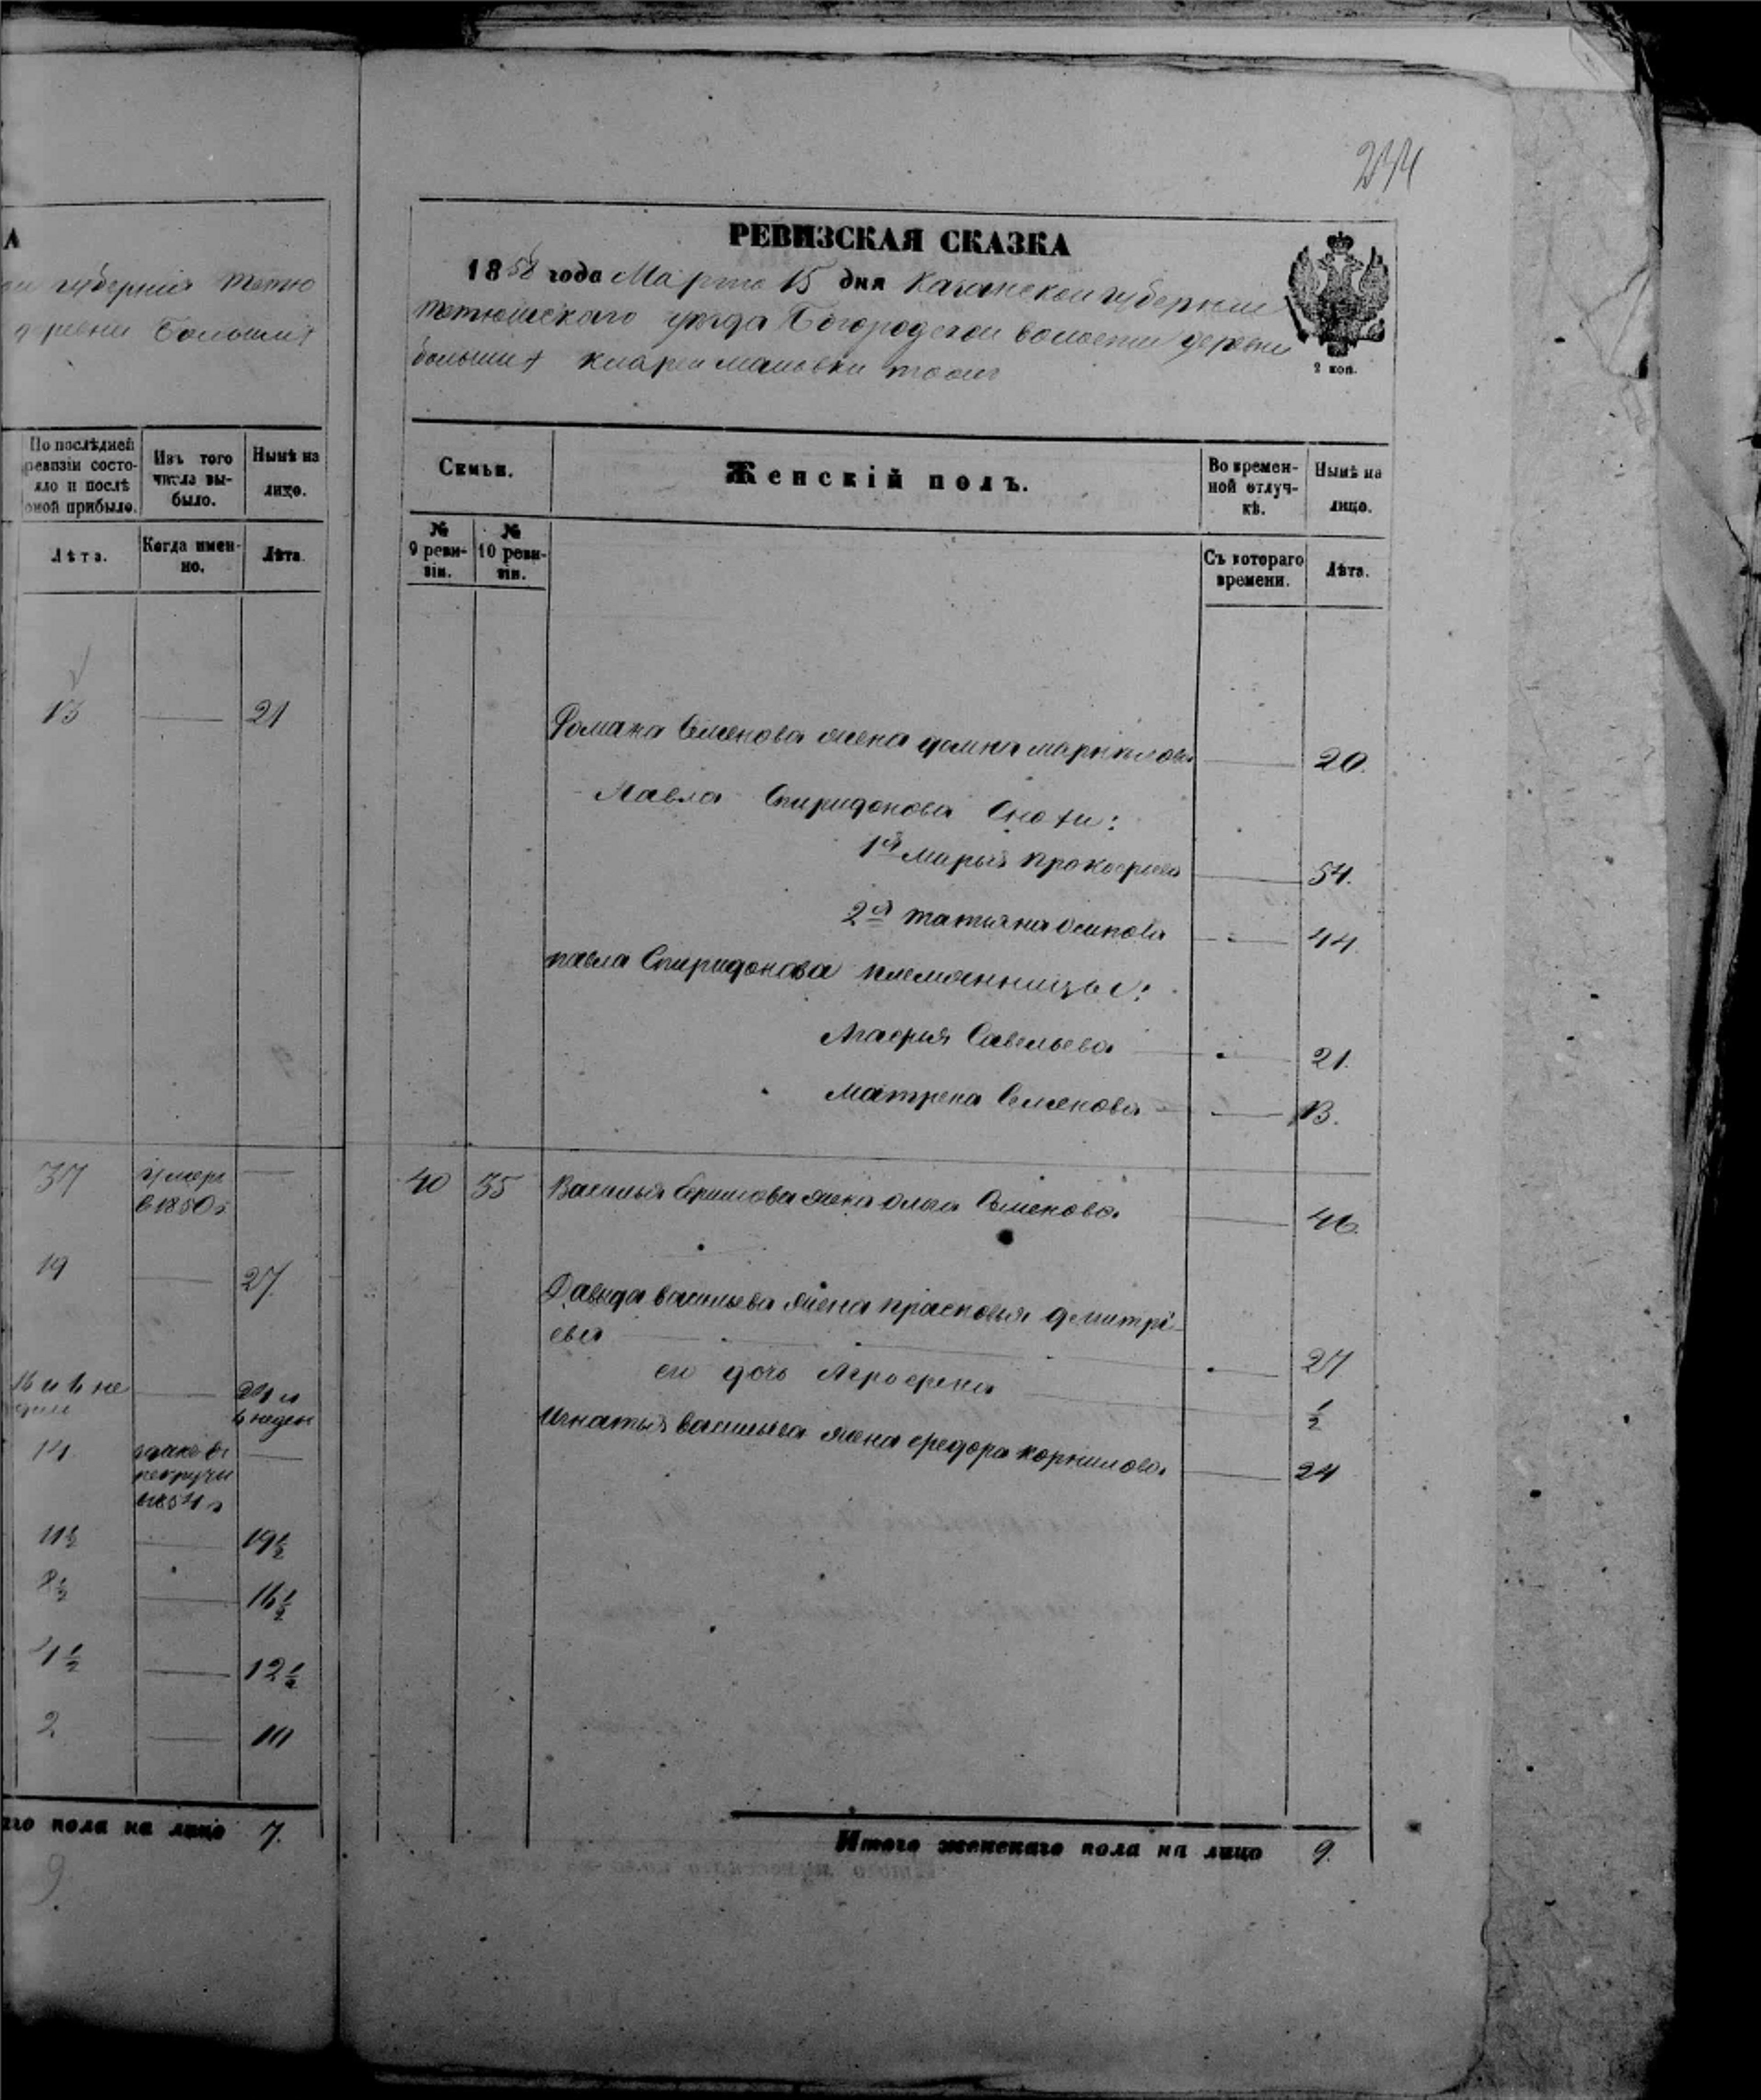 А
губернія Тетю
деревни Большихъ
По послѣдней ревизіи состояло и послѣ оной прибыло.
Изъ того числа выбыло.
Нынѣ на лицо.
Лѣта.
Когда именно.
Лѣта.
13 — 21
37 умеръ —
в 1850 г
19 — 27
16 и 6 не — 24 и
дели 6 недель
14 —
рекруты
в 1854 г
11½ — 19½
8½ — 16½
4½ — 12½
2 — 10
го пола на лицо 7.
9.
234
РЕВИЗСКАЯ СКАЗКА
1858 года Марта 15 дня Казанской губерніи
Тетюшскаго уезда Богородской волости деревни
больших
2 коп.
Семьи.
Женскій полъ.
Во временной отлучкѣ.
Нынѣ на лицо.
№ 9 ревизіи.
№ 10 ревизіи.
Съ котораго времени.
Лѣта.
Романа Семенова жена домна — 20.
Павла Спиридонова Снохи:
1я Марья Прокофьева — 54.
2я татьяна Осипова — 44.
павла Спиридонова племянницы:
Агафья Савельева — 21.
Матрена Семенова — 13.
40 35 Василья Ефимова жена Олга Семенова — 46.
Давыда васильева жена прасковья демитрі
ева — 27
его дочь Агрофена — ½
Игнатья васильева жена федора корнилова — 24
Итого женскаго пола на лицо 9.